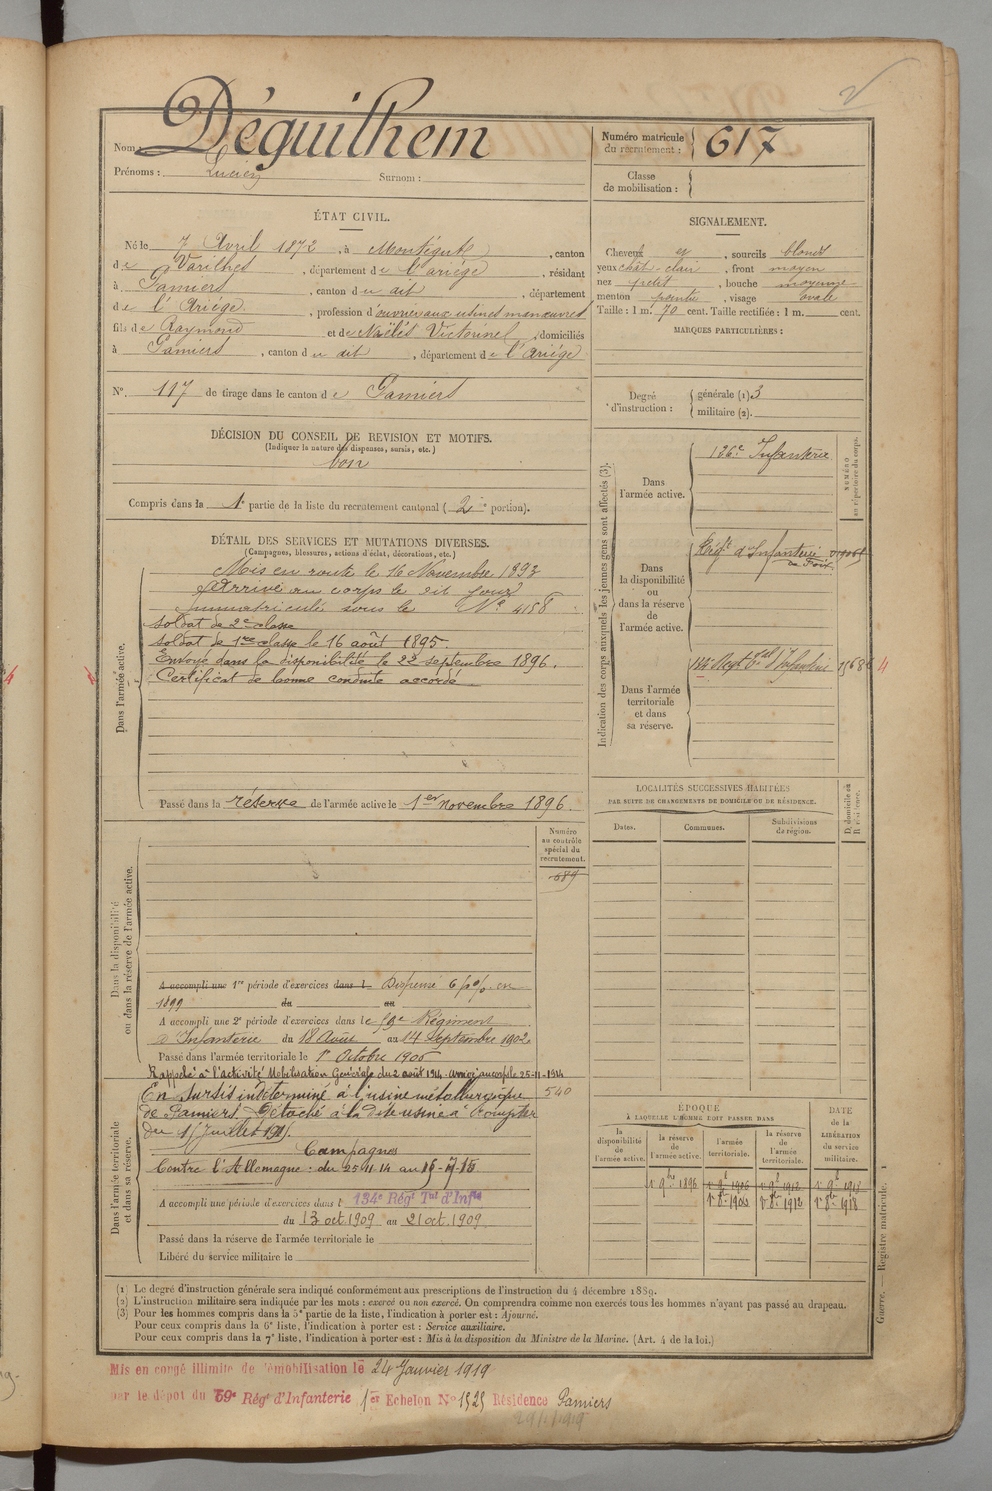 Nom : Déguilhem
Prénoms : Lucien Surnom :
Numéro matricule du recrutement : 617
Classe de mobilisation :
ÉTAT CIVIL.
Né le 7 Avril 1872, à Montégut, canton
de Varilhes, département de l'ariège, résidant
à Pamiers, canton du dit, département
de l'Ariège, profession d'ouvrier aux usines manœuvres
fils de Raymond et de Victorine, domiciliés
à Pamiers, canton du dit, département de l'Ariège
N°. 117 de tirage dans le canton de Pamiers
DÉCISION DU CONSEIL DE REVISION ET MOTIFS.
(Indiquer la nature des dispenses, sursis, etc.)
bon
Compris dans la 1e partie de la liste du recrutement cantonal (2e portion).
SIGNALEMENT.
Cheveux et, sourcils blonds
yeux chât-clair, front moyen
nez petit, bouche moyenne
menton pointu, visage ovale
Taille : 1 m. 70 cent. Taille rectifiée : 1 m. cent.
MARQUES PARTICULIÈRES :
Degré d'instruction :
générale (1) 3
militaire (2).
DÉTAIL DES SERVICES ET MUTATIONS DIVERSES.
(Campagnes, blessures, actions d'éclat, décorations, etc.)
Dans l'armée active.
Mis en route le 16 Novembre 1893
Arrivé au corps le dit jour
Immatriculé sous le N° 4158
soldat de 2e classe
soldat de 1re classe le 16 août 1895.
Envoyé dans la disponibilité le 22 septembre 1896.
Certificat de bonne conduite accordé
Passé dans la réserve de l'armée active le 1er novembre 1896.
Indication des corps auxquels les jeunes gens sont affectés (3).
NUMÉRO au répertoire du corps.
Dans l'armée active.
126e Infanterie
Dans la disponibilité ou dans la réserve de l'armée active.
Régt d'Infanterie de Foix
Dans l'armée territoriale et dans sa réserve.
134 Regt trial d'Infanterie
LOCALITÉS SUCCESSIVES HABITÉES
PAR SUITE DE CHANGEMENTS DE DOMICILE OU DE RÉSIDENCE.
Dates. Communes. Subdivisions de région. D. domicile ou R. résidence.
Dans la disponibilité ou dans la réserve de l'armée active.
Numéro au contrôle spécial du recrutement.
689
A accompli une 1re période d'exercices dans l Dispensé 6 p % en
1899 du au
A accompli une 2e période d'exercices dans le 59e Régiment
d'Infanterie du 18 Août au 14 Septembre 1902
Passé dans l'armée territoriale le 1er Octobre 1906
Dans l'armée territoriale et dans sa réserve.
Rappelé à l'activité Mobilisation Générale du 2 août 1914. arrivé au corps le 25-11-1914
En sursis indéterminé à l'usine métallurgique 540
de Pamiers. Détaché à la dite usine à compter
du 15 Juillet 1915.
Campagnes
Contre l'Allemagne : du 25 11 14 au 15-7-15
A accompli une période d'exercices dans l 134e Régt Tal d'Infie
du 13 oct 1909 au 21 oct 1909.
Passé dans la réserve de l'armée territoriale le
Libéré du service militaire le
ÉPOQUE
À LAQUELLE L'HOMME DOIT PASSER DANS
la disponibilité de l'armée active. la réserve de l'armée active. l'armée territoriale. la réserve de l'armée territoriale.
DATE de la LIBÉRATION du service militaire.
1er 9bre 1896 1er 9bre 1906 1er 9bre 1912 1er 9bre 1918
1er 8bre 1906 1er 8bre 1912 1er 8bre 1918
Guerre. — Registre matricule. 1
(1) Le degré d'instruction générale sera indiqué conformément aux prescriptions de l'instruction du 4 décembre 1889.
(2) L'instruction militaire sera indiquée par les mots : exercé ou non exercé. On comprendra comme non exercés tous les hommes n'ayant pas passé au drapeau.
(3) Pour les hommes compris dans la 5e partie de la liste, l'indication à porter est : Ajourné.
Pour ceux compris dans la 6e liste, l'indication à porter est : Service auxiliaire.
Pour ceux compris dans la 7e liste, l'indication à porter est : Mis à la disposition du Ministre de la Marine. (Art. 4 de la loi.)
Mis en congé illimité de démobilisation le 24 Janvier 1919
par le dépôt du 59e Régt d'Infanterie 1er Echelon N° 1525 Résidence Pamiers